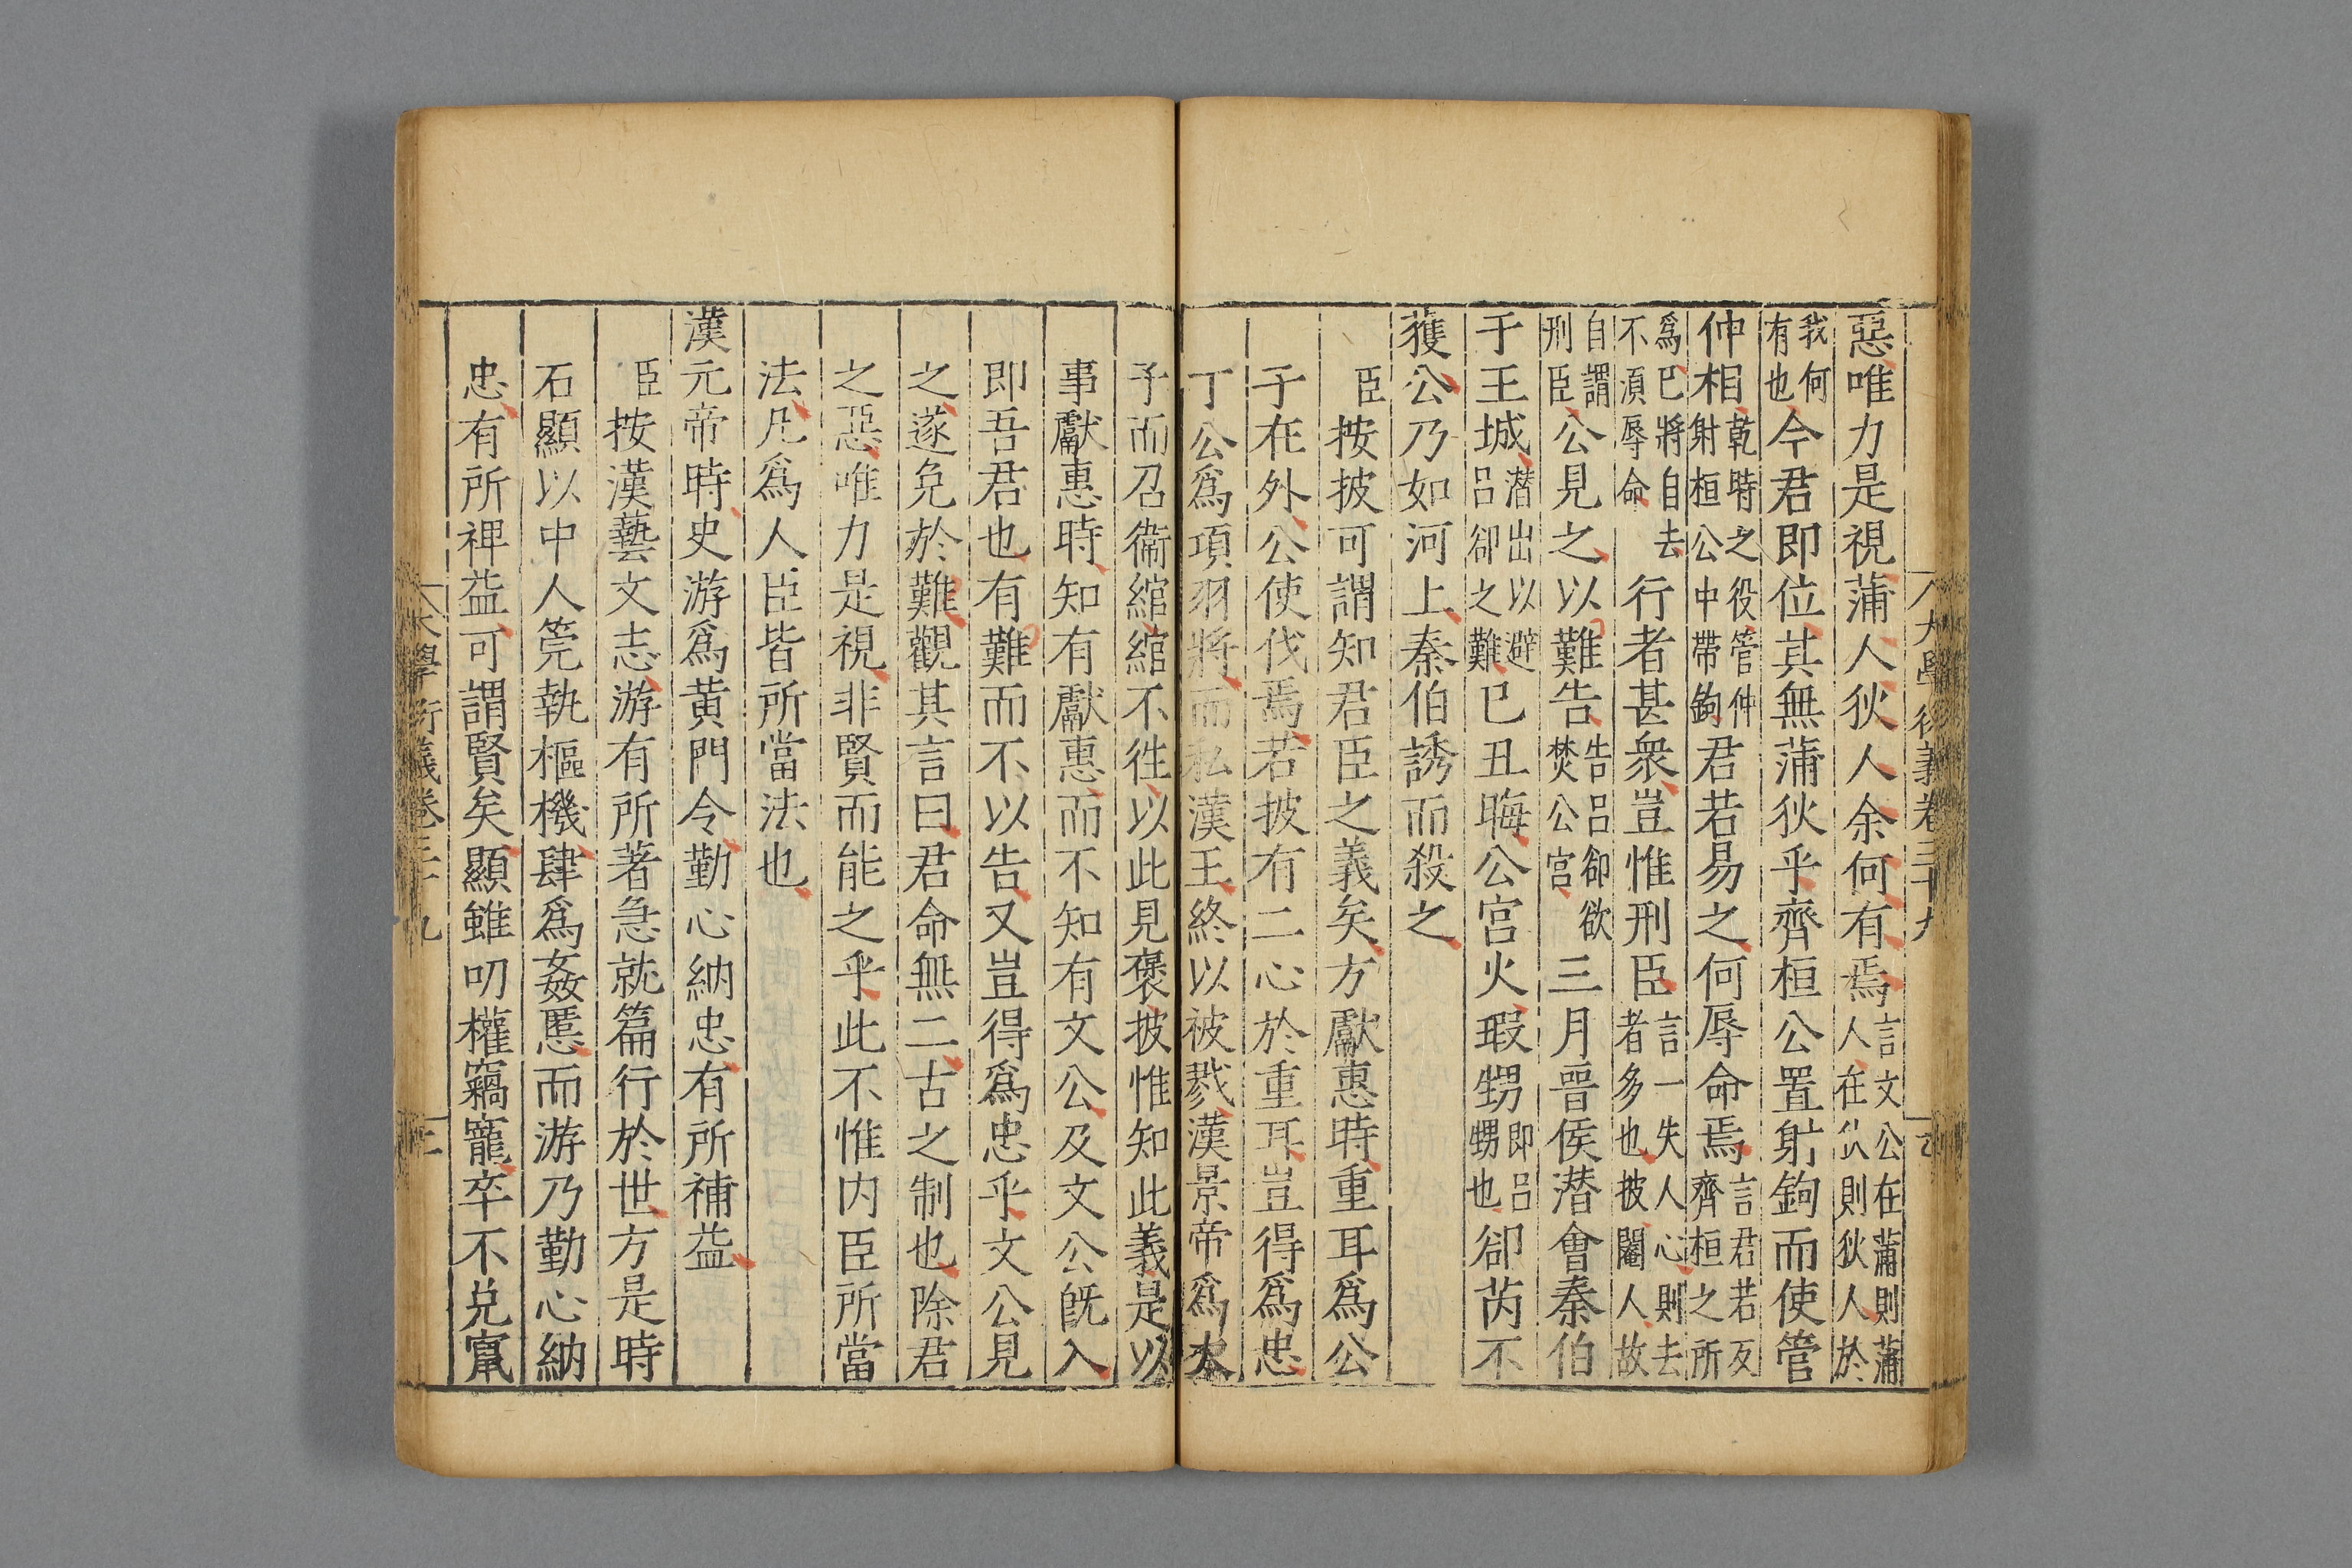 惡唯力是視蒲人狄人余何有焉言文公在蒲則蒲人在狄則狄人於
我何有也今君即位其無蒲狄乎齊桓公置射鉤而使管
仲相乾時之役管仲射桓公中帶鉤君若易之何辱命焉言君若反齊桓之所
爲已將自去不須辱命行者甚衆豈惟刑臣言一失人心則去者多也披閹人故
自謂刑臣公見之以難告告呂郤欲焚公宮三月晉侯潛會秦伯
于王城潛出以避呂郤之難已丑晦公宮火瑕甥即呂甥也郤芮不
獲公乃如河上秦伯誘而殺之
臣按披可謂知君臣之義矣方獻惠時重耳爲公
子在外公使伐焉若披有二心於重耳豈得爲忠
丁公爲項羽將而私漢王終以被戮漢景帝爲太
子而召衞綰綰不徃以此見褒披惟知此義是以
事獻惠時知有獻惠而不知有文公及文公旣入
即吾君也有難而不以告又豈得爲忠乎文公見
之遂免於難觀其言曰君命無二古之制也除君
之惡唯力是視非賢而能之乎此不惟内臣所當
法凡爲人臣皆所當法也
漢元帝時史游爲黄門令勤心納忠有所補益
臣按漢藝文志游有所著急就篇行於世方是時
石顯以中人筦執樞機肆爲姦慝而游乃勤心納
忠有所裨益可謂賢矣顯雖叨權竊寵卒不免竄